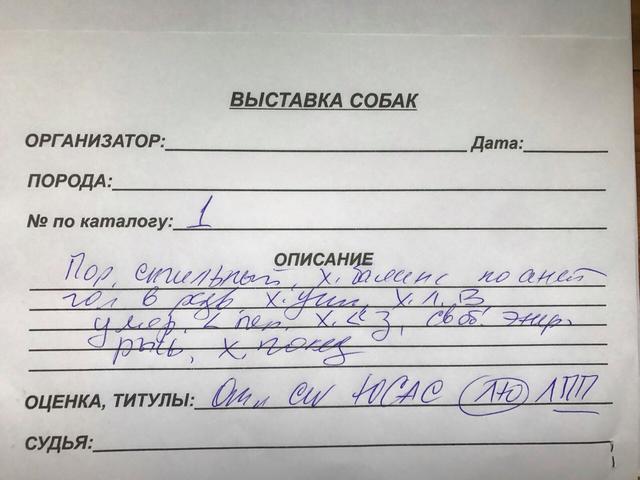 ВЫСТАВКА СОБАК
ОРГАНИЗАТОР: Дата:
ПОРОДА:
№ по каталогу: 1
ОПИСАНИЕ
Пор, стильный, х. баланс по анат
гол в разв х. уши, х. л. в
умер. < пер. х. < з, своб. энер.
рысь, х. показ
ОЦЕНКА, ТИТУЛЫ: Отл CW ЮСАС ЛЮ ЛПП
СУДЬЯ: